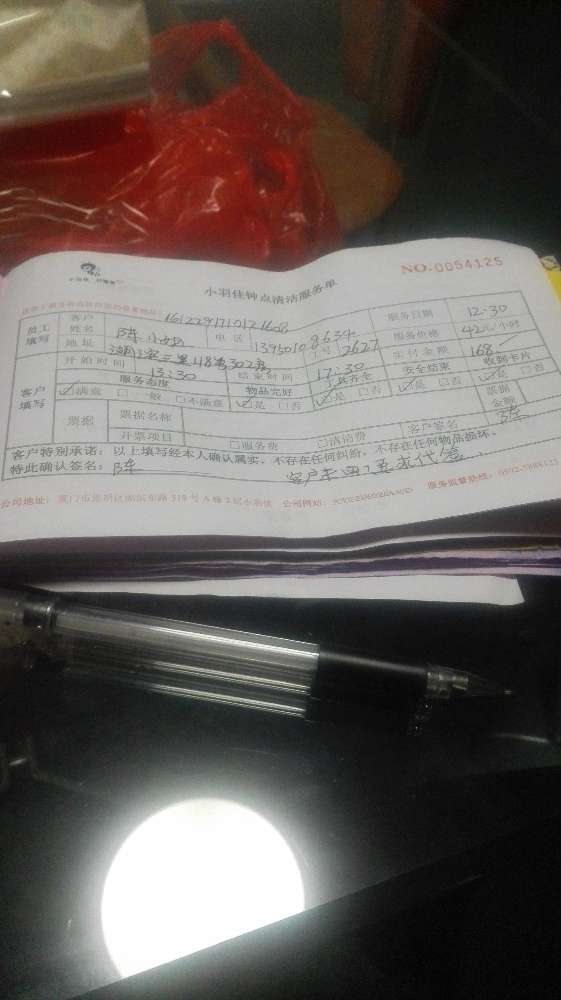 NO.0054125
小羽佳钟点清洁服务单
员工填写 客户姓名 1612291710121608 陈小姐 电话 13950108634 服务日期 12-30
地址 湖滨三里118号302房 工号 2627 服务价格 42元/小时
客户填写 开始时间 13:30 结束时间 17:30 实付金额 168
服务态度 物品完好 工具齐全 安全结束 收到卡片
☑满意 □一般 □不满意 ☑是 □否 ☑是 □否 ☑是 □否 ☑是 □否
票据 票据名称 票据金额
开票项目 □服务费 □清洁费 客户签名 陈
客户特别承诺：以上填写经本人确认属实，不存在任何纠纷，不存在任何物品损坏。
特此确认签名：陈 客户未回 要求代签
公司地址： 公司网站： 服务监督热线：